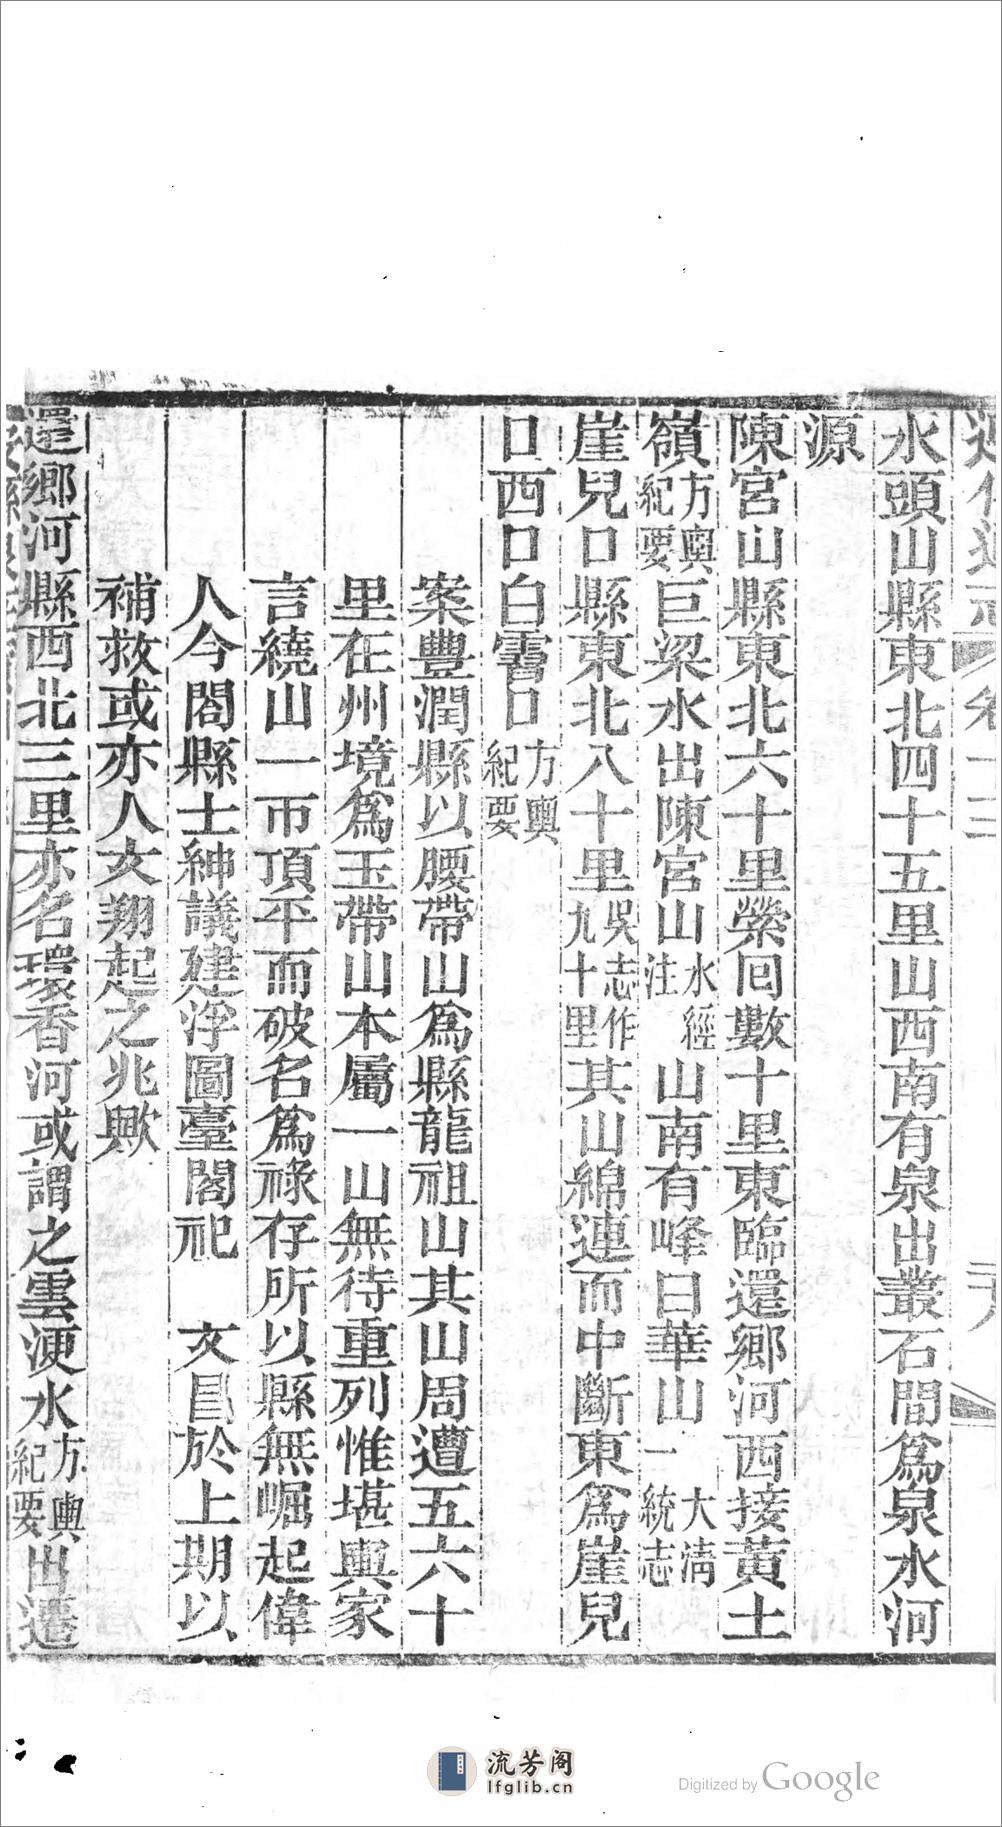 遵化通志 卷十三 二十八
水頭山縣東北四十五里山西南有泉出叢石間爲泉水河
源
陳宮山縣東北六十里縈回數十里東臨還鄉河西接黃土
嶺方輿紀要巨梁水出陳宮山水經注山南有峰曰華山大清一統志
崖兒口縣東北八十里吳志作九十里其山綿連而中斷東爲崖兒
口西口白霫口方輿紀要
案豐潤縣以腰帶山爲縣龍祖山其山周遭五六十
里在州境爲玉帶山本屬一山無待重列惟堪輿家
言繞山一帀頂平而破名爲祿存所以縣無崛起偉
人今閤縣士紳議建浮圖臺閣祀 文昌於上期以
補救或亦人文翔起之兆歟
還鄉河縣西北三里亦名環香河或謂之雲浭水方輿紀要出遷
流芳阁
lfglib.cn
Digitized by Google